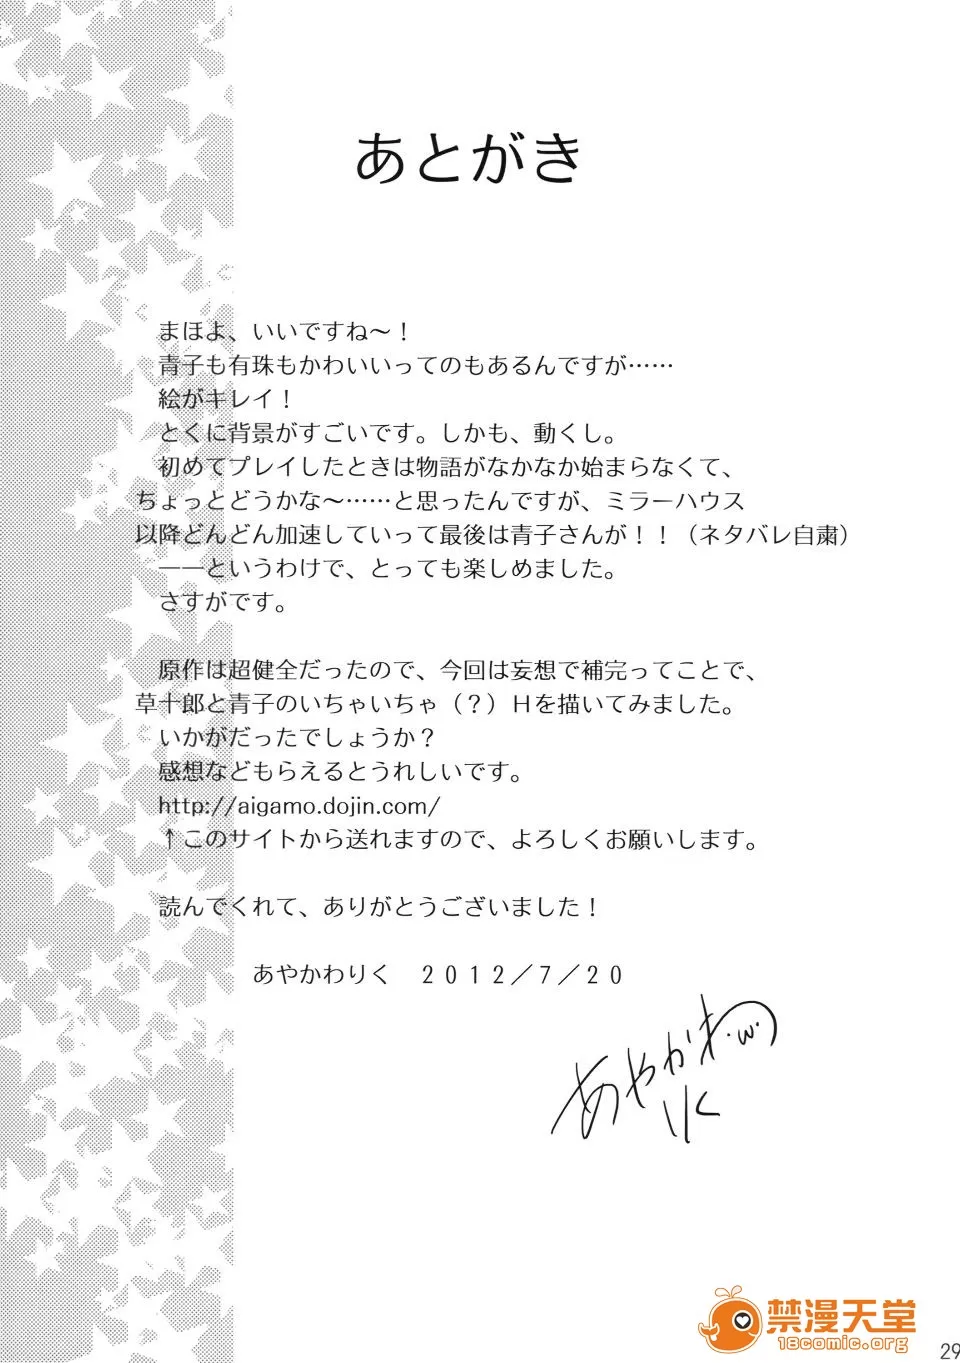 あとがき
まほよ、いいですね～！
青子も有珠もかわいいってのもあるんですが……
絵がキレイ！
とくに背景がすごいです。しかも、動くし。
初めてプレイしたときは物語がなかなか始まらなくて、
ちょっとどうかな～……と思ったんですが、ミラーハウス
以降どんどん加速していって最後は青子さんが！！（ネタバレ自粛）
――というわけで、とっても楽しめました。
さすがです。
原作は超健全だったので、今回は妄想で補完ってことで、
草十郎と青子のいちゃいちゃ（？）Ｈを描いてみました。
いかがだったでしょうか？
感想などもらえるとうれしいです。
http://aigamo.dojin.com/
↑このサイトから送れますので、よろしくお願いします。
読んでくれて、ありがとうございました！
あやかわりく　２０１２／７／２０
あやかわ
りく
禁漫天堂
18comic.org
29